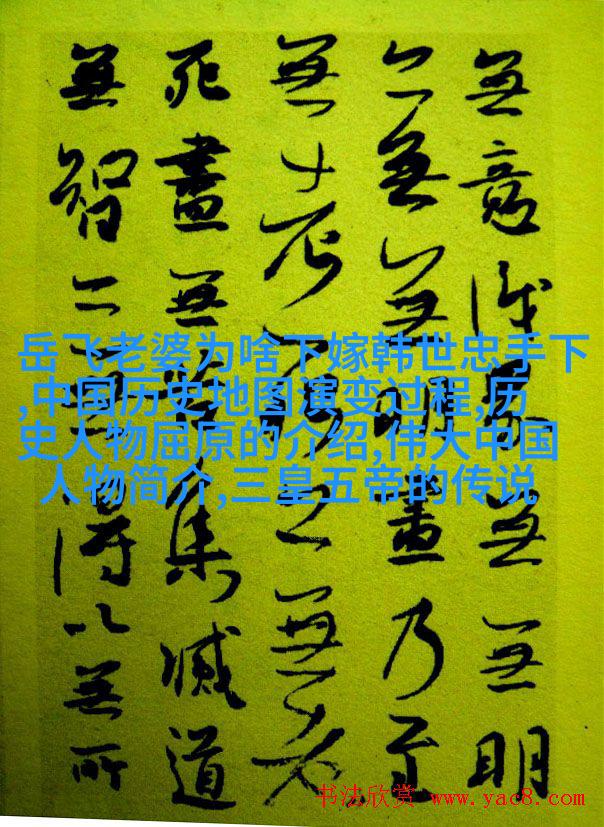 無意識界無無明
亦無無明盡乃至
無老死亦無老
死盡無苦集滅道
無智亦無得以無所
岳飞老婆为啥下嫁韩世忠手下
,中国历史地图演变过程,历
史人物屈原的介绍,伟大中国
人物简介,三皇五帝的传说
书法欣赏 www.yac8.com